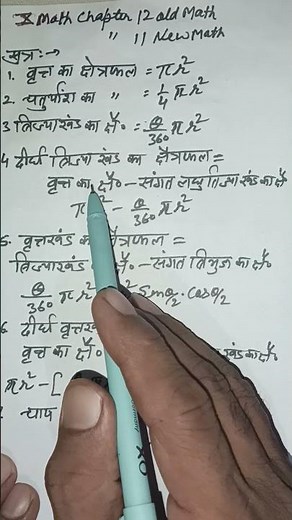 X Math Chapter 12 old Math
" 11 New Math
सूत्र :→
1. वृत्त का क्षेत्रफल = πr²
2. चतुर्थांश का " = 1/4 πr²
3 त्रिज्याखंड का क्षे० = θ/360 πr²
4 दीर्घ त्रिज्याखंड का क्षेत्रफल =
वृत्त का क्षे० - संगत लघु त्रिज्याखंड का क्षे०
r² - θ/360 πr²
5. वृत्तखंड का क्षेत्रफल =
त्रिज्याखंड क्षे० - संगत त्रिभुज का क्षे०
θ/360 πr² Sinθ/2 . Cosθ/2
6 दीर्घ वृत्तखं
वृत्त का क्षे० खंड का क्षे०
πr² - [
चाप